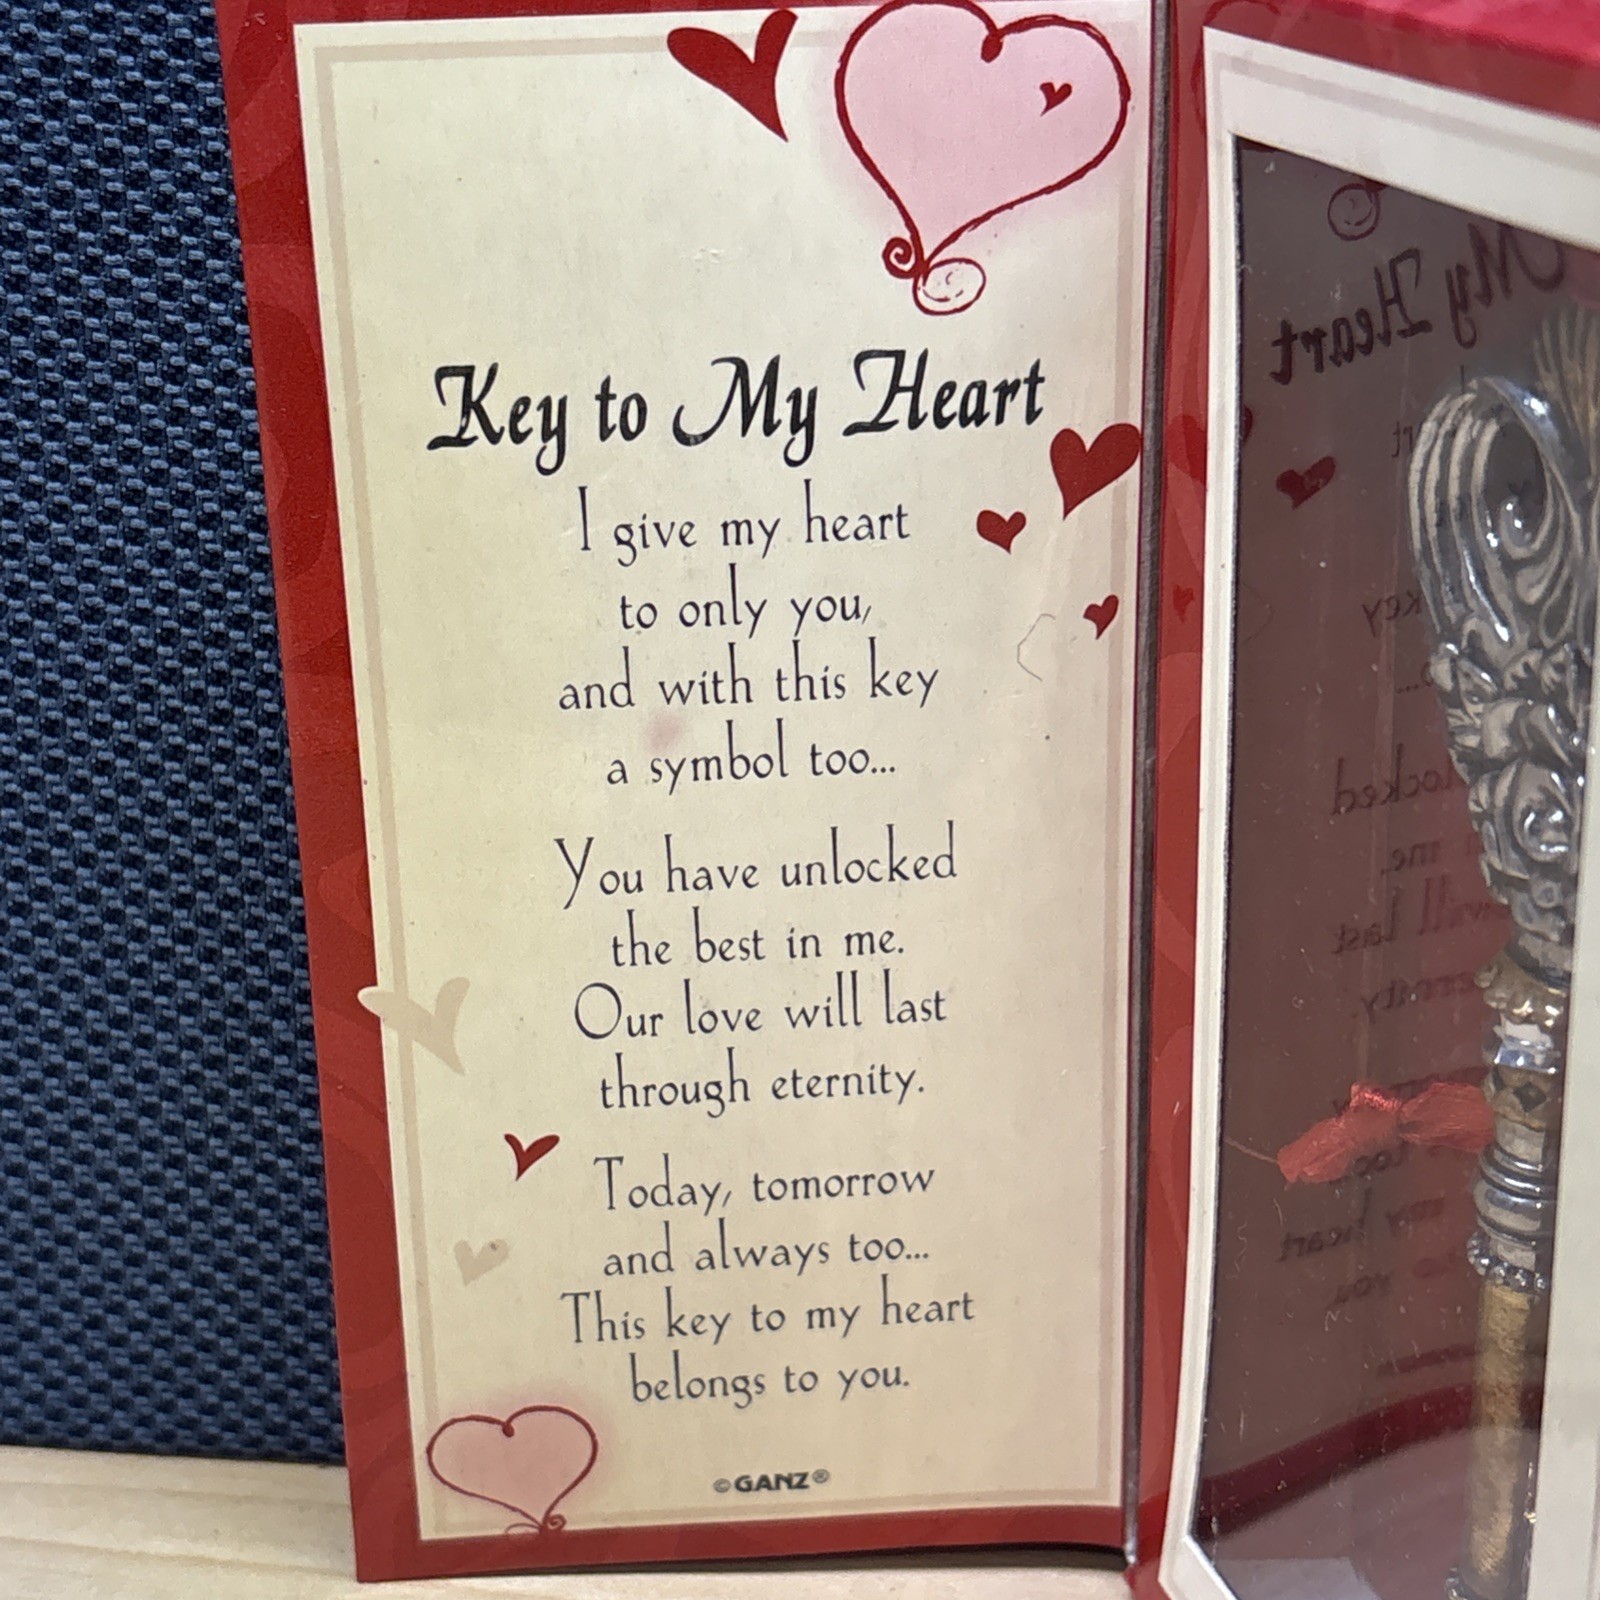 Key to My Heart
I give my heart
to only you,
and with this key
a symbol too...
You have unlocked
the best in me.
Our love will last
through eternity.
Today, tomorrow
and always too...
This key to my heart
belongs to you.
©GANZ®
My Heart